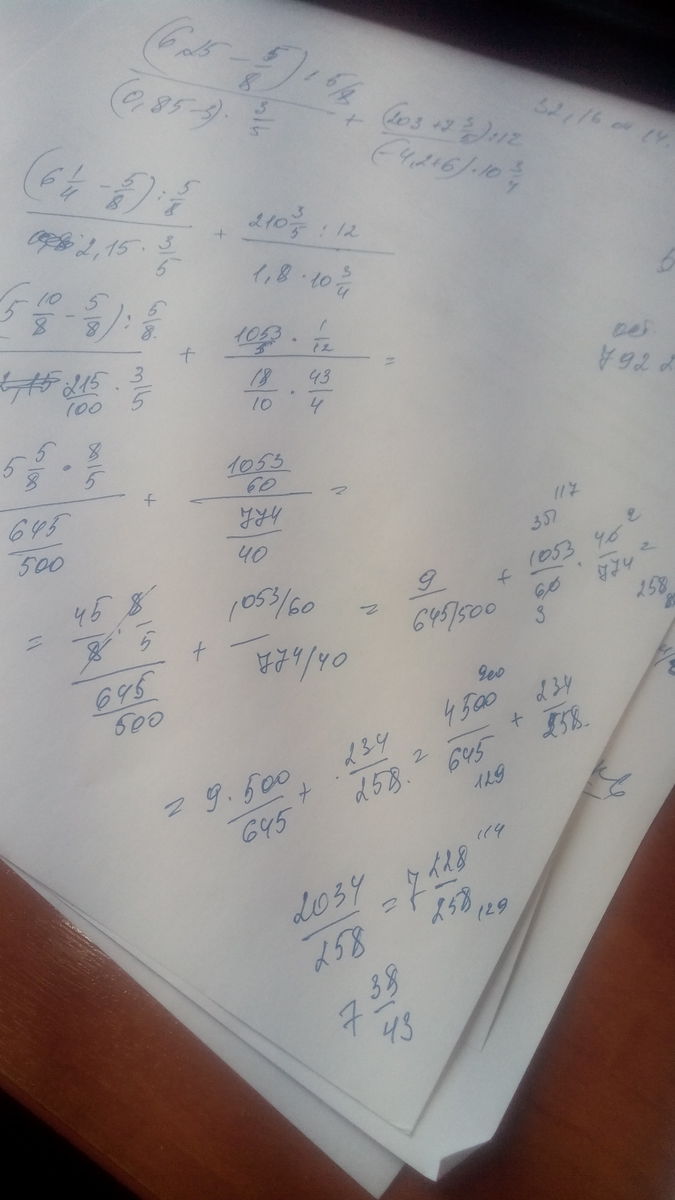 (6,25 - 5/8) : 5/8 / (0,85-3) · 3/5 + (203 + 7 3/5) : 12 / (-4,2+6) · 10 3/4
(6 1/4 - 5/8) : 5/8 / 2,15 · 3/5 + 210 3/5 : 12 / 1,8 · 10 3/4
(5 10/8 - 5/8) : 5/8. / 215/100 · 3/5 + 1053/5 · 1/12 / 18/10 · 43/4 =
ост.
792
5 5/8 · 8/5 / 645/500 + 1053/60 / 774/40 =
= 45/8 · 8/5 / 645/500 + 1053/60 / 774/40 = 9 / 645/500 + 1053/60 · 40/774 =
351 117
3
258
= 9 · 500/645 + 234/258. = 4500/645 + 234/258.
900
129
2034/258 = 7 228/258
114
129
7 38/43